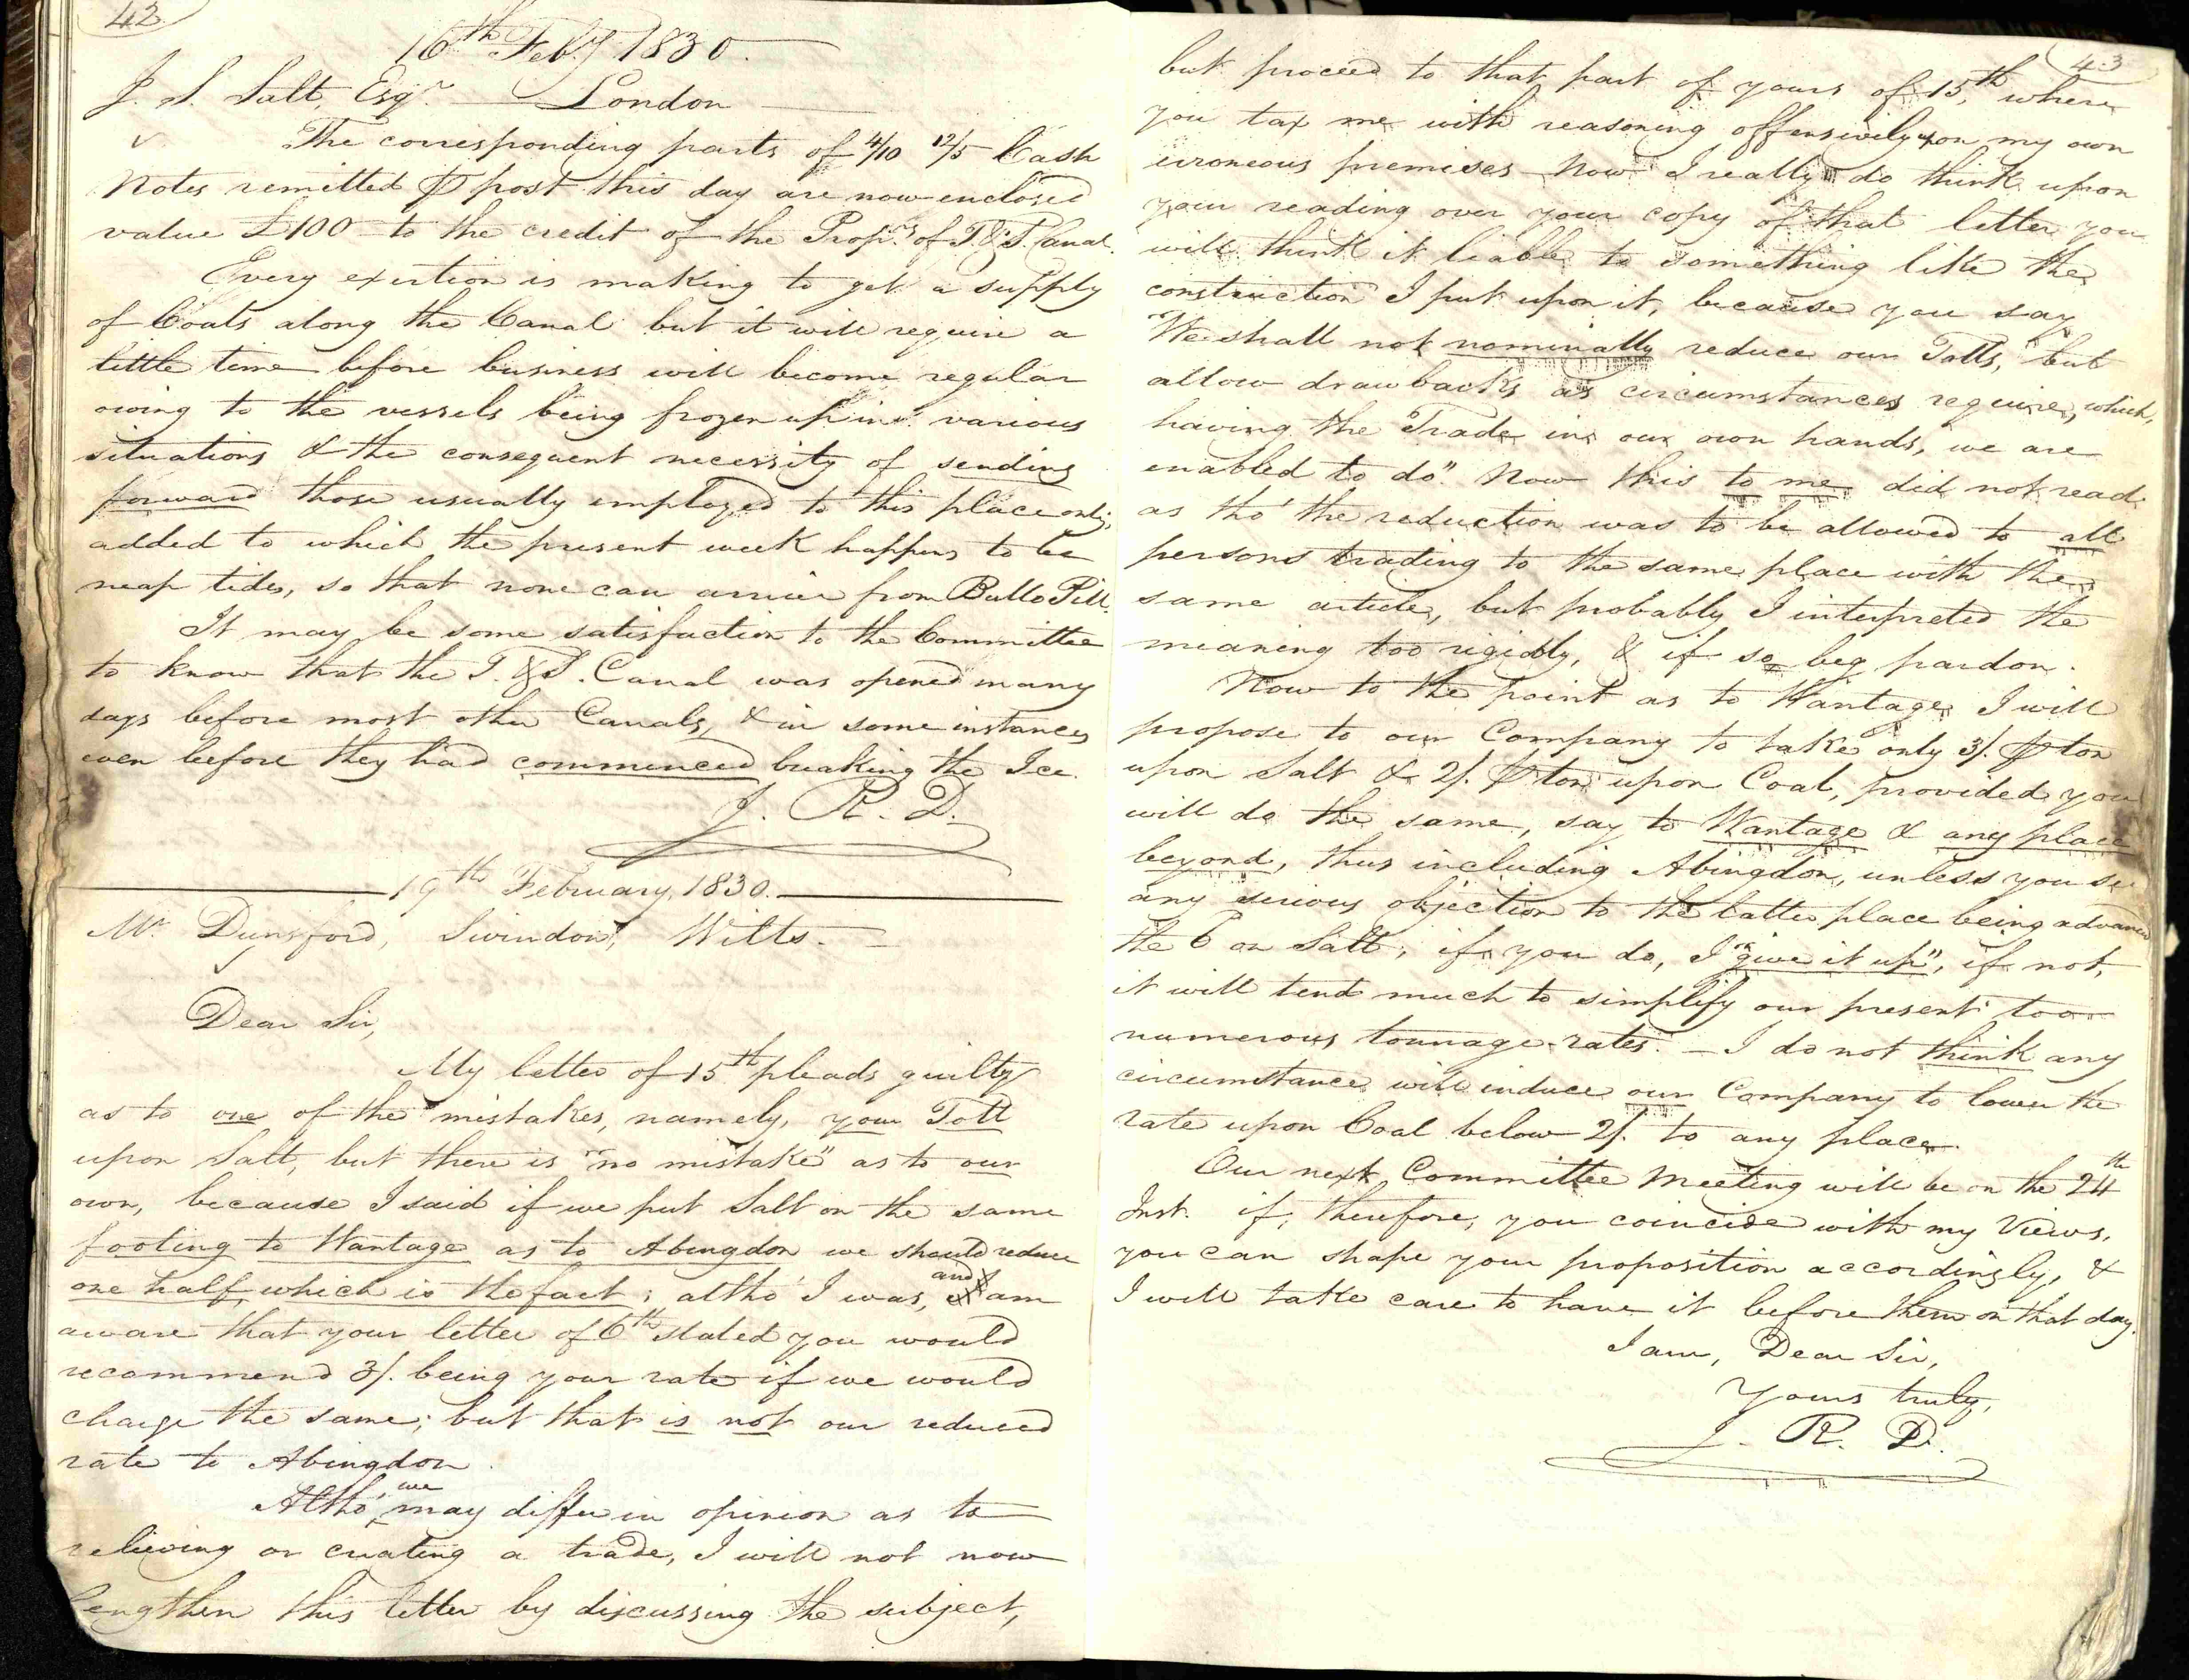 42
16th Feby 1830.
J. S. Salt, Esqr. London
The corresponding parts of 4/10 12/5 Cash
Notes remitted ⅌ post this day are now enclosed
value £100 to the credit of the Proprs. of T. & S. Canal.
Every exertion is making to get a supply
of Coals along the Canal but it will require a
little time before business will become regular
owing to the vessels being frozen up in various
situations & the consequent necessity of sending
forward those usually employed to this place only,
added to which the present week happens to be
neap tides, so that none can arrive from Bullo Pill.
It may be some satisfaction to the Committee
to know that the T. & S. Canal was opened many
days before most other Canals, & in some instances
even before they had commenced breaking the Ice.
J. R. D.
19th February, 1830.
Mr. Dunsford, Swindon, Wilts.
Dear Sir,
My letter of 15th pleads guilty
as to one of the mistakes, namely, your Toll
upon Salt, but there is "no mistake" as to our
own, because I said if we put Salt on the same
footing to Wantage as to Abingdon we should reduce
one half, which is the fact; altho' I was, and am
aware that your letter of 6th stated you would
recommend 3/. being your rate if we would
charge the same; but that is not our reduced
rate to Abingdon.
Altho' we may differ in opinion as to
relieving or creating a trade, I will not now
lengthen this letter by discussing the subject,
43
but proceed to that part of yours of 15th, where
you tax me with reasoning offensively upon my own
erroneous premises. Now I really do think upon
your reading over your copy of that letter you
will think it liable to something like the
construction I put upon it, because you say
We shall not nominally reduce our Tolls, "but
allow drawbacks as circumstances require, which,
having the Trade in our own hands, we are
enabled to do". Now this to me did not read
as tho' the reduction was to be allowed to all
persons trading to the same place with the
same article, but probably I interpreted the
meaning too rigidly, & if so beg pardon.
Now to the point as to Wantage. I will
propose to our Company to take only 3/. ⅌ ton
upon Salt & 2/. ⅌ ton upon Coal, provided you
will do the same, say to Wantage & any place
beyond, thus including Abingdon, unless you see
any serious objection to the latter place being advanced
the 6 on Salt; if you do, I "give it up", if not,
it will tend much to simplify our present too
numerous tonnage-rates. — I do not think any
circumstance will induce our Company to lower the
rate upon Coal below 2/. to any place.
Our next Committee Meeting will be on the 24th
Inst. if, therefore, you coincide with my Views,
you can shape your proposition accordingly, &
I will take care to have it before them on that day.
I am, Dear Sir,
Yours truly,
J. R. D.